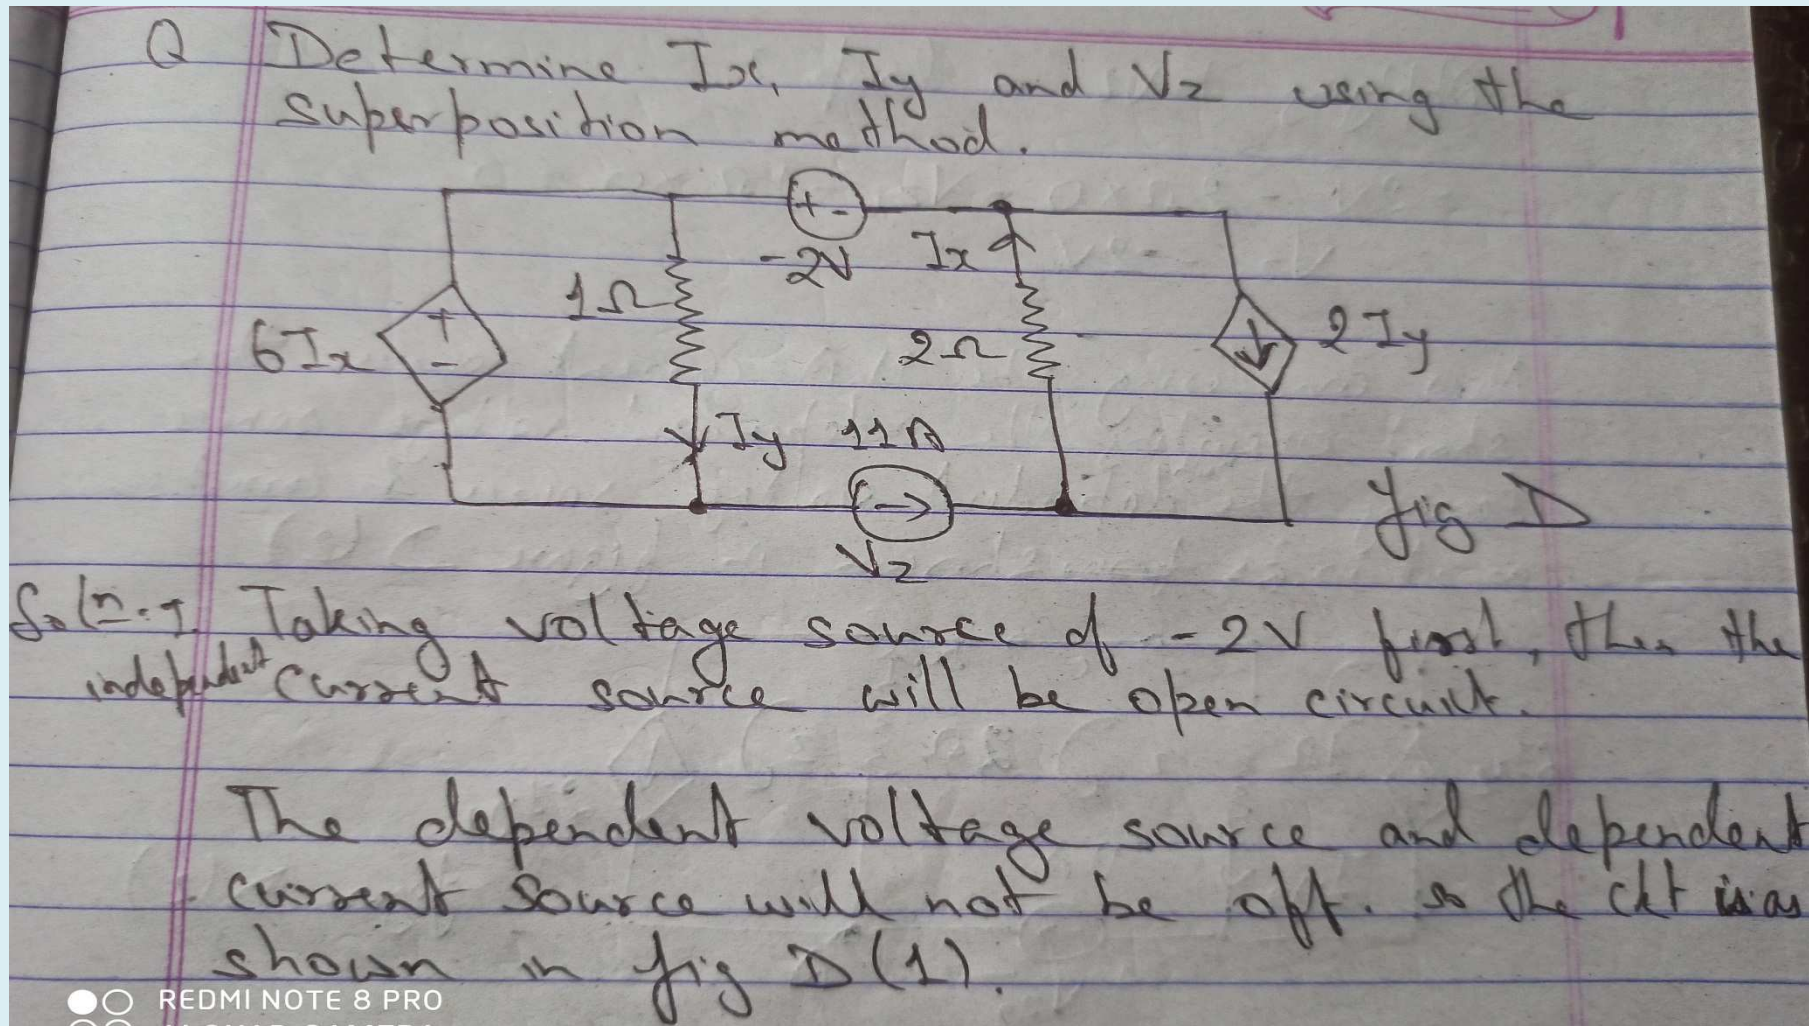 Q Determine Ix, Iy and Vz using the
superposition method.
+ -
-2V Ix
1Ω
+
-
6Ix
2Ω
2Iy
Iy 11A
Vz
fig D
Soln:- Taking voltage source of -2V first, then the
independent current source will be open circuit.
The dependent voltage source and dependent
current source will not be off. so the ckt is as
shown in fig D(1).
REDMI NOTE 8 PRO